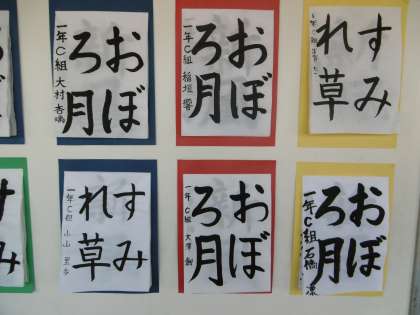 おぼ
ろ月
一年C組 大村
おぼ
ろ月
一年C組 稲垣 響
すみ
れ草
すみ
すみ
れ草
一年C組 小山 里
おぼ
ろ月
一年C組 大澤
おぼ
ろ月
一年C組 石橋 涼